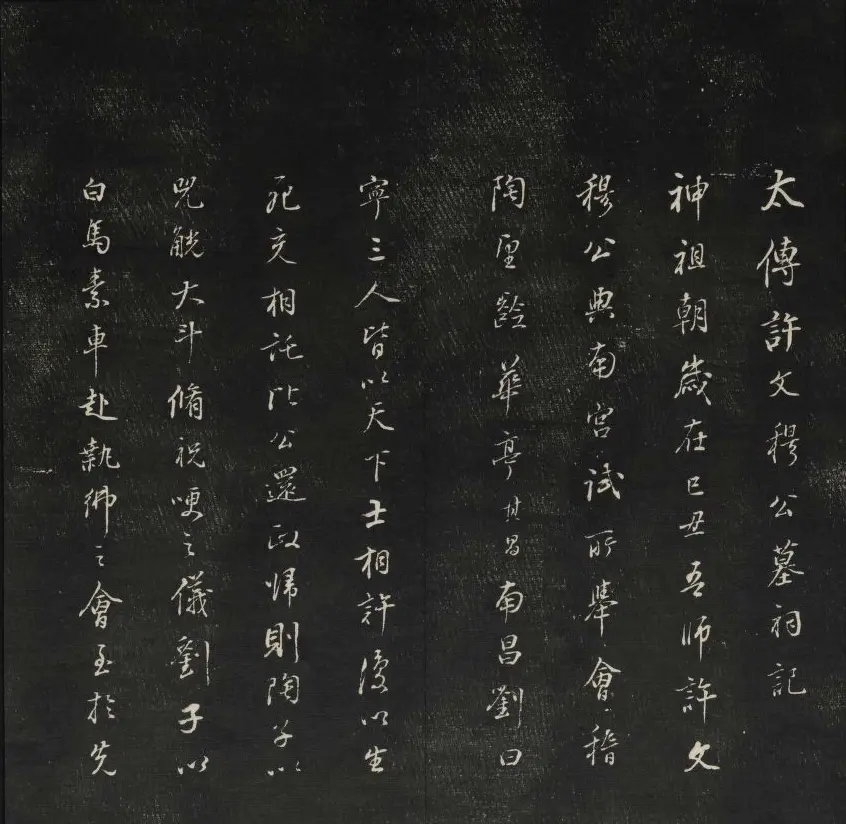 太傅許文穆公墓祠記
神祖朝歲在己丑吾師許文
穆公典南宮試所舉會稽
陶望齡華亭其昌南昌劉曰
寧三人皆以天下士相許復以生
死交相託比公還政歸則陶子以
兕觥大斗脩祝哽之儀劉子以
白馬素車赴執紼之會至於先